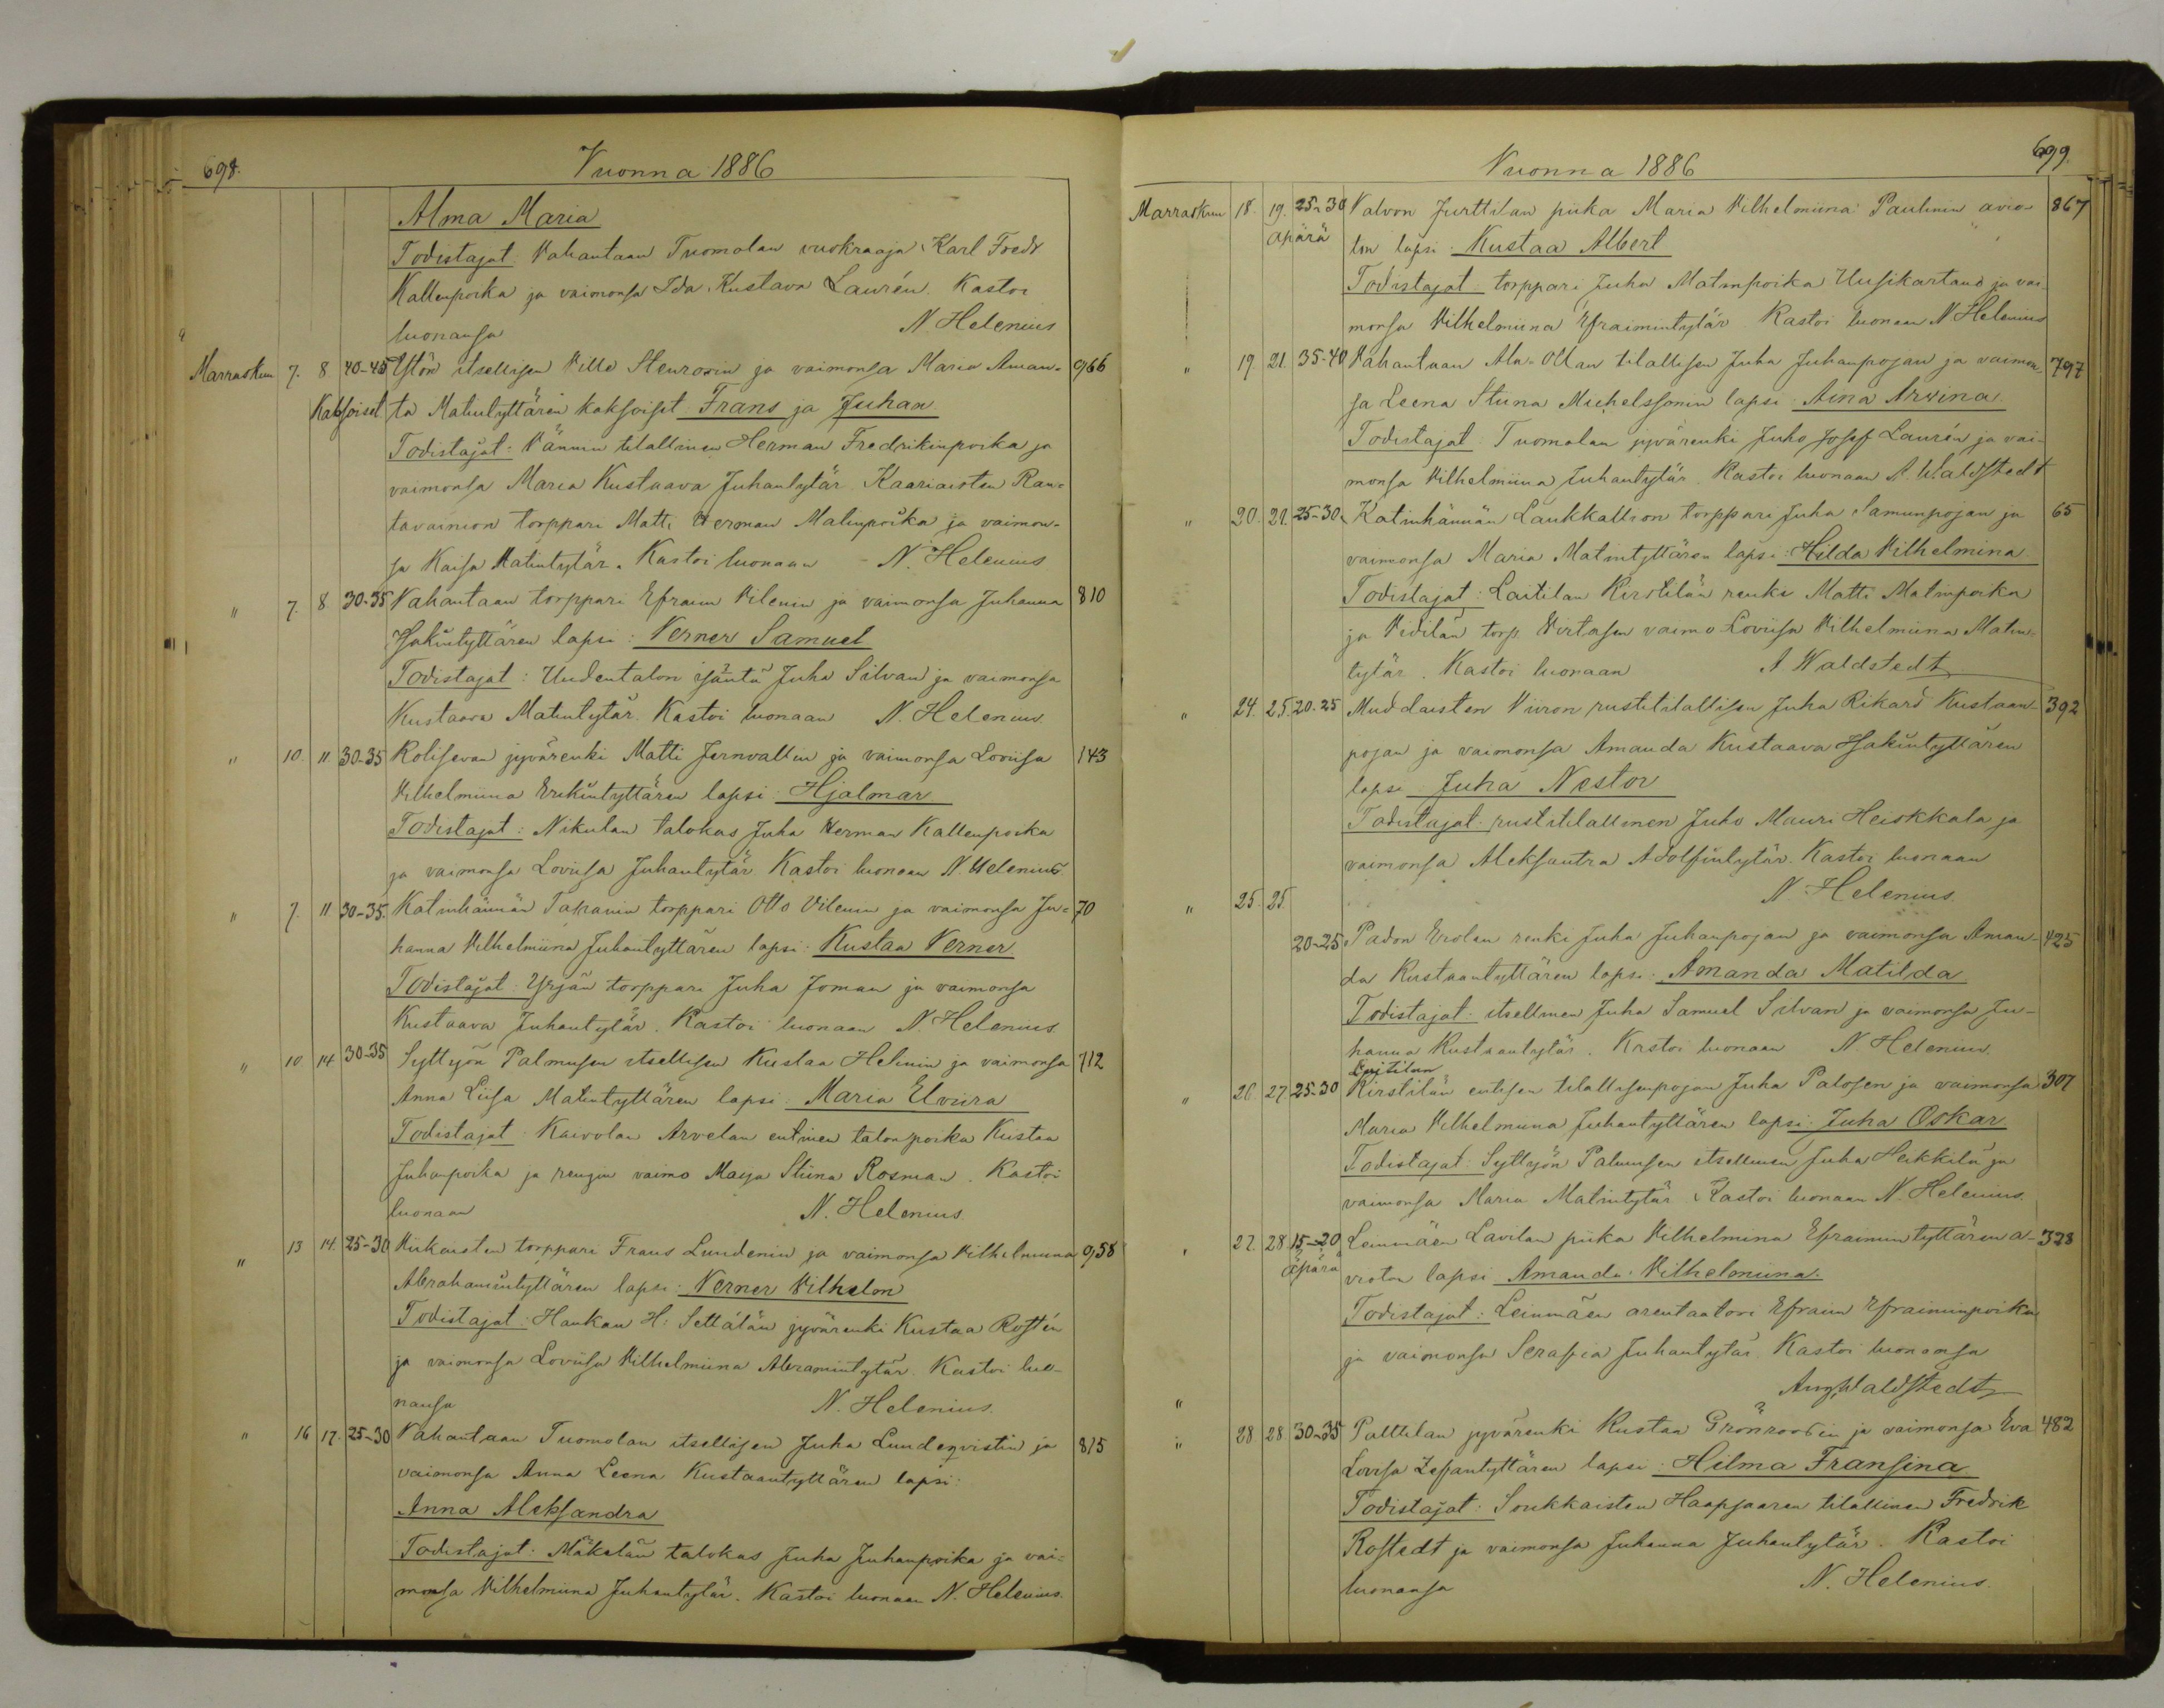 698.
Vuonna 1886
Alma Maria
Todistajat: Vahantaan Tuomolan vuokraaja Karl Fredr
Kallenpoika ja vaimonsa Ida Kustava Laurén. Kastoi
luonansa N. Helenius
Marraskuu 7. 8. 40-45 itsellisen Ville Stenrosin ja vaimonsa Maria Aman- 966
Kaksoiset ta Matintyttären kaksoiset: Frans ja Juhan
Todistajat: Männin tilallinen Herman Fredrikinpoika ja
vaimonsa Maria Kustaava Juhantytär. Kaariaisten Ran-
tavainion torppari Matti Herman Matinpoika ja vaimon-
sa Kaisa Matintytär. Kastoi luonaan N. Helenius
" 7. 8 30-35 Vahantaan torppari Efraim Vilenin ja vaimonsa Juhanna 810
Isakintyttären lapsi: Verner Samuel
Todistajat: Uudentalon isäntä Juha Silvan ja vaimonsa
Kustaava Matintytär. Kastoi luonaan N. Helenius.
" 10. 11 30-35 Kolisevan jyvärenki Matti Jernvallin ja vaimonsa Loviisa 143
Vilhelmiina Erikintyttären lapsi: Hjalmar
Todistajat: Nikulan talokas Juha Herman Kallenpoika
ja vaimonsa Loviisa Juhantytär. Kastoi luonaan N. Helenius
" 7. 11 30-35. Katinhännän Tapanin torppari Otto Vilenin ja vaimonsa Ju- 70
hanna Vilhelmiina Juhantyttären lapsi: Kustaa Verner
Todistajat: Yrjän torppari Juha Joman ja vaimonsa
Kustaava Juhantytär. Kastoi luonaan N. Helenius
" 10 14 30-35 Syttyön Palmusen itsellisen Kustaa Helinin ja vaimonsa 712
Anna Liisa Matintyttären lapsi: Maria Elviira
Todistajat: Kaivolan Arvelan entinen talonpoika Kustaa
Juhanpoika ja rengin vaimo Maija Stiina Rosman. Kastoi
luonaan N. Helenius.
" 13 14. 25-30 torppari Frans Lundenin ja vaimonsa Vilhelmiina 958
Abrahamintyttären lapsi: Verner Vilhelm
Todistajat: Haukan H: Settälän jyvärenki Kustaa Rostén
ja vaimonsa Loviisa Vilhelmiina Abramintytär. Kastoi luo-
nansa N. Helenius.
" 16 17. 25-30 Vahantaan Tuomolan itsellisen Juha Lundeqvistin ja 815
vaimonsa Anna Leena Kustaantyttären lapsi:
Anna Aleksandra
Todistajat: Mäkelän talokas Juha Juhanpoika ja vai-
monsa Vilhelmiina Juhantytär. Kastoi luonaan N. Helenius.
699.
Vuonna 1886
Marraskuu 18. 19. 25-30 Valvon Jurttilan piika Maria Vilhelmiina Paulinin avio- 867
äpärä ton lapsi: Kustaa Albert
Todistajat: torppari Juha Matinpoika Uusikartano ja vai-
monsa Vilhelmiina Efraimintytär. Kastoi luonaan N Helenius
" 19. 21. 35-40 Vahantaan Ala-Ollan tilallisen Juha Juhanpojan ja vaimon- 797
sa Leena Stiina Michelssonin lapsi: Aina Arvina
Todistajat: Tuomolan jyvärenki Juho Josef Laurén ja vai-
monsa Vilhelmiina Juhantytär. Kastoi luonaan A. Waldstedt
" 20. 21. 25-30 Katinhännän Laukkallion torppari Juha Samunpojan ja 65
vaimonsa Maria Matintyttären lapsi: Hilda Vilhelmina
Todistajat: Laitilan Kirstilän renki Matti Matinpoika
ja Vidilän torp. Virtasen vaimo Loviisa Vilhelmiina Matin-
tytär. Kastoi luonaan A Waldstedt
" 24. 25. 20-25 Muddaisten Viiron rustitilallisen Juha Rikard Kustaan- 392
pojan ja vaimonsa Amanda Kustaava Isakintyttären
lapsi: Juha Nestor
Todistajat: rustitilallinen Juho Mauri Heiskkala ja
vaimonsa Aleksantra Adolfintytär. Kastoi luonaan
N. Helenius.
" 25. 25.
20-25 Padon Erolan renki Juha Juhanpojan ja vaimonsa Aman- 425
da Kustaantyttären lapsi: Amanda Matilda
Todistajat: itsellinen Juha Samuel Silvan ja vaimonsa Ju-
hanna Kustaantytär. Kastoi luonaan N Helenius.
Laitilan
" 26. 27 25-30 Kirstilän entisen tilallisenpojan Juha Palosen ja vaimonsa 307
Maria Vilhelmiina Juhantyttären lapsi: Juha Oskar
Todistajat: Syttyön Palmusen itsellinen Juha Heikkilä ja
vaimonsa Maria Matintytär. Kastoi luonaan N. Helenius.
" 27. 28 15-20 Leinmäen Lavilan piika Vilhelmina Efraimintyttären a- 328
äpärä vioton lapsi Amanda Vilhelmiina.
Todistajat: Leinmäen arentaatori Efraim Efraiminpoika
ja vaimonsa Serafia Juhantytär. Kastoi luonansa
" Aug. Waldstedt
" 28 28 30-35 Palttilan jyvärenki Kustaa Grönroosin ja vaimonsa Eva 482
Lovisa lapsi: Hilma Fransina
Todistajat: Soukkaisten Haapsaaren tilallinen Fredrik
Rostedt ja vaimonsa Juhanna Juhantytär. Kastoi
luonansa N. Helenius.